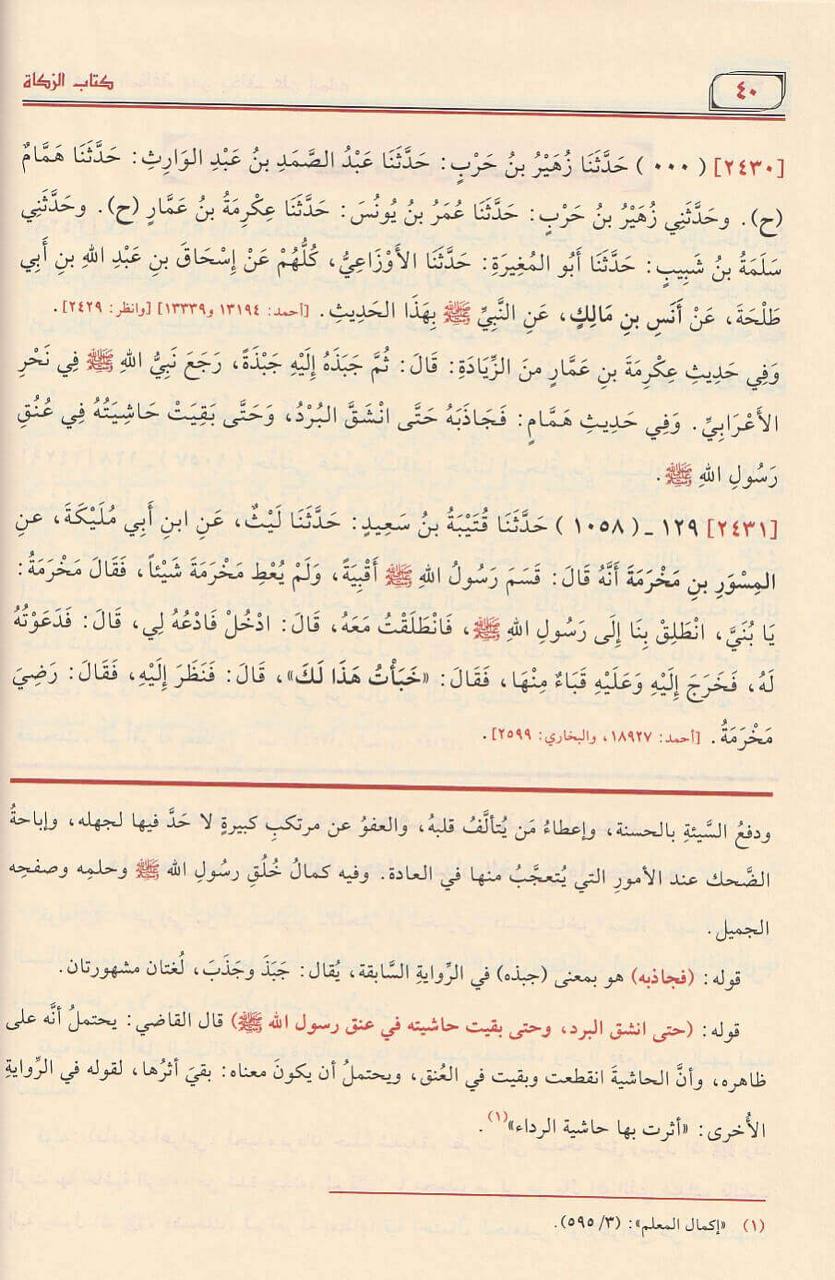 ٤٠
كتاب الزكاة
[٢٤٣٠] (٠٠٠) حَدَّثَنَا زُهَيْرُ بنُ حَرْبٍ: حَدَّثَنَا عَبْدُ الصَّمَدِ بنُ عَبْدِ الوَارِثِ: حَدَّثَنَا هَمَّامٌ
(ح). وحَدَّثَنِي زُهَيْرُ بنُ حَرْبٍ: حَدَّثَنَا عُمَرُ بنُ يُونُسَ: حَدَّثَنَا عِكْرِمَةُ بنُ عَمَّارٍ (ح). وحَدَّثَنِي
سَلَمَةُ بنُ شَبِيبٍ: حَدَّثَنَا أَبُو المُغِيرَةِ: حَدَّثَنَا الأَوْزَاعِيُّ، كُلُّهُمْ عَنْ إِسْحَاقَ بنِ عَبْدِ اللهِ بنِ أَبِي
طَلْحَةَ، عَنْ أَنَسِ بنِ مَالِكٍ، عَنِ النَّبِيِّ ﷺ بِهَذَا الحَدِيثِ. [أحمد: ١٣١٩٤ و١٣٣٣٩] [وانظر: ٢٤٢٩].
وَفِي حَدِيثِ عِكْرِمَةَ بنِ عَمَّارٍ مِنَ الزِّيَادَةِ: قَالَ: ثُمَّ جَبَذَهُ إِلَيْهِ جَبْذَةً، رَجَعَ نَبِيُّ اللهِ ﷺ فِي نَحْرِ
الأَعْرَابِيِّ. وَفِي حَدِيثِ هَمَّامٍ: فَجَاذَبَهُ حَتَّى انْشَقَّ البُرْدُ، وَحَتَّى بَقِيَتْ حَاشِيَتُهُ فِي عُنُقِ
رَسُولِ اللهِ ﷺ.
[٢٤٣١] ١٢٩ - (١٠٥٨) حَدَّثَنَا قُتَيْبَةُ بنُ سَعِيدٍ: حَدَّثَنَا لَيْثٌ، عَنِ ابنِ أَبِي مُلَيْكَةَ، عَنِ
المِسْوَرِ بنِ مَخْرَمَةَ أَنَّهُ قَالَ: قَسَمَ رَسُولُ اللهِ ﷺ أَقْبِيَةً، وَلَمْ يُعْطِ مَخْرَمَةَ شَيْئاً، فَقَالَ مَخْرَمَةُ:
يَا بُنَيَّ، انْطَلِقْ بِنَا إِلَى رَسُولِ اللهِ ﷺ، فَانْطَلَقْتُ مَعَهُ، قَالَ: ادْخُلْ فَادْعُهُ لِي، قَالَ: فَدَعَوْتُهُ
لَهُ، فَخَرَجَ إِلَيْهِ وَعَلَيْهِ قَبَاءٌ مِنْهَا، فَقَالَ: «خَبَأْتُ هَذَا لَكَ»، قَالَ: فَنَظَرَ إِلَيْهِ، فَقَالَ: رَضِيَ
مَخْرَمَةُ. [أحمد: ١٨٩٢٧، والبخاري: ٢٥٩٩].
ودفعُ السَّيئةِ بالحسنة، وإعطاءُ مَن يُتألَّفُ قلبهُ، والعفوُ عن مرتكبِ كبيرةٍ لا حَدَّ فيها لجهله، وإباحةُ
الضَّحك عند الأمورِ التي يُتعجَّبُ منها في العادة. وفيه كمالُ خُلُقِ رسُولِ الله ﷺ وحلمِه وصفحِه
الجميل.
قوله: (فجاذبه) هو بمعنى (جبذه) في الرِّوايةِ السَّابقة، يُقال: جَبَذَ وجَذَبَ، لُغتان مشهورتان.
قوله: (حتى انشق البرد، وحتى بقيت حاشيته في عنق رسول الله ﷺ) قال القاضي: يحتملُ أنَّه على
ظاهره، وأنَّ الحاشيةَ انقطعت وبقيت في العُنق، ويحتملُ أن يكونَ معناه: بقيَ أثرُها، لقوله في الرِّوايةِ
الأُخرى: «أثرت بها حاشية الرداء»(١).
(١) «إكمال المعلم»: (٣/ ٥٩٥).